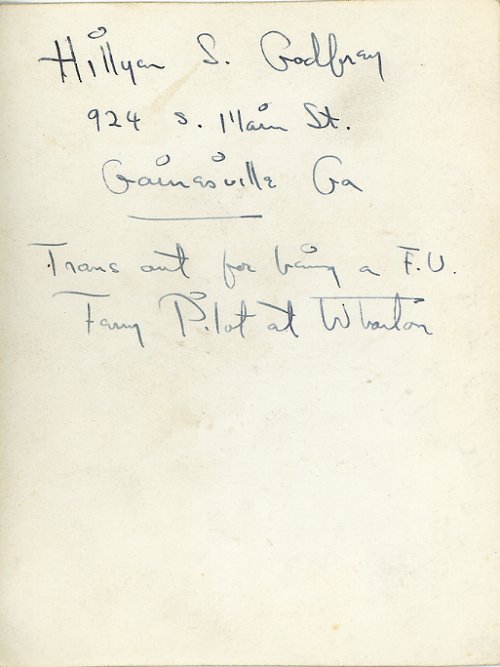 Hillyer S. Godfrey
924 S. Main St.
Gainesville Ga
Trans out for being a F.U.
Ferry Pilot at Wharton